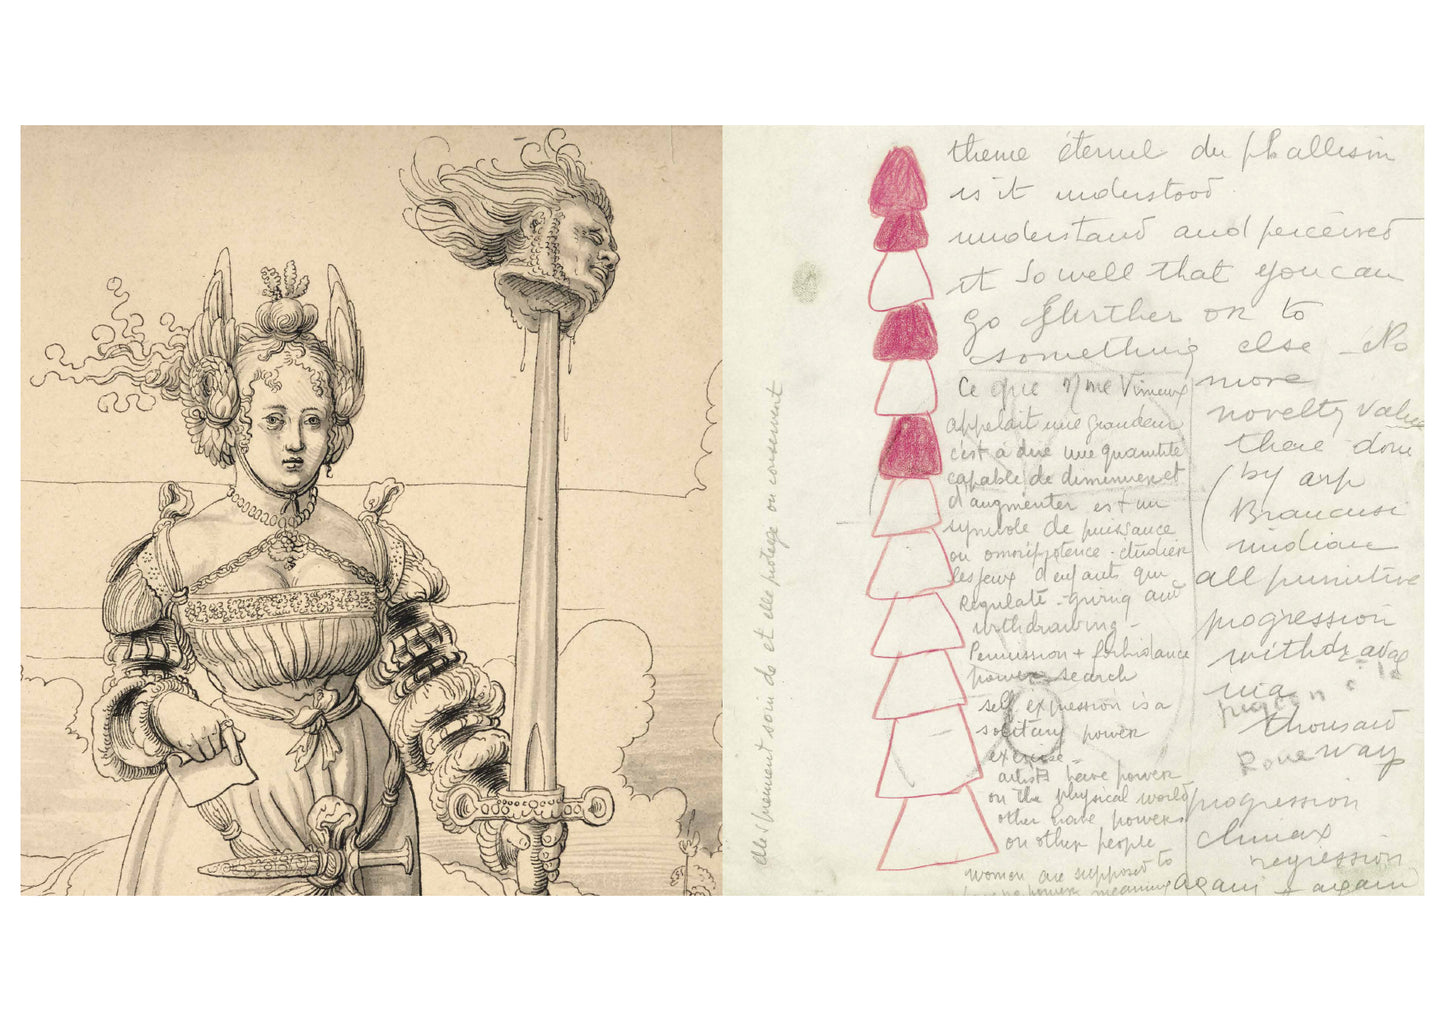 theme éternel du phallism
is it understood
understand and perceived
it so well that you can
go further on to
something else - No
more
novelty value
there done
(by arp
Brancusi
indian
all primitive
progression
withdrawal
via
thousand
Rome way
progression
climax
regression
again + again
Ce que Mme
appelait une grandeur
c'est à dire une quantité
capable de diminuer et
d'augmenter est un
symbole de puissance
ou omnipotence - étudier
les jeux d'enfants qui
Regulate - giving and
withdrawing -
Permission + forbidance
power - search
self expression is a
solitary power
exercise -
artists have power
on the physical world
other have powers
on other people
women are supposed to
power meaning
elles prennent soin de et elle protège ou conservent